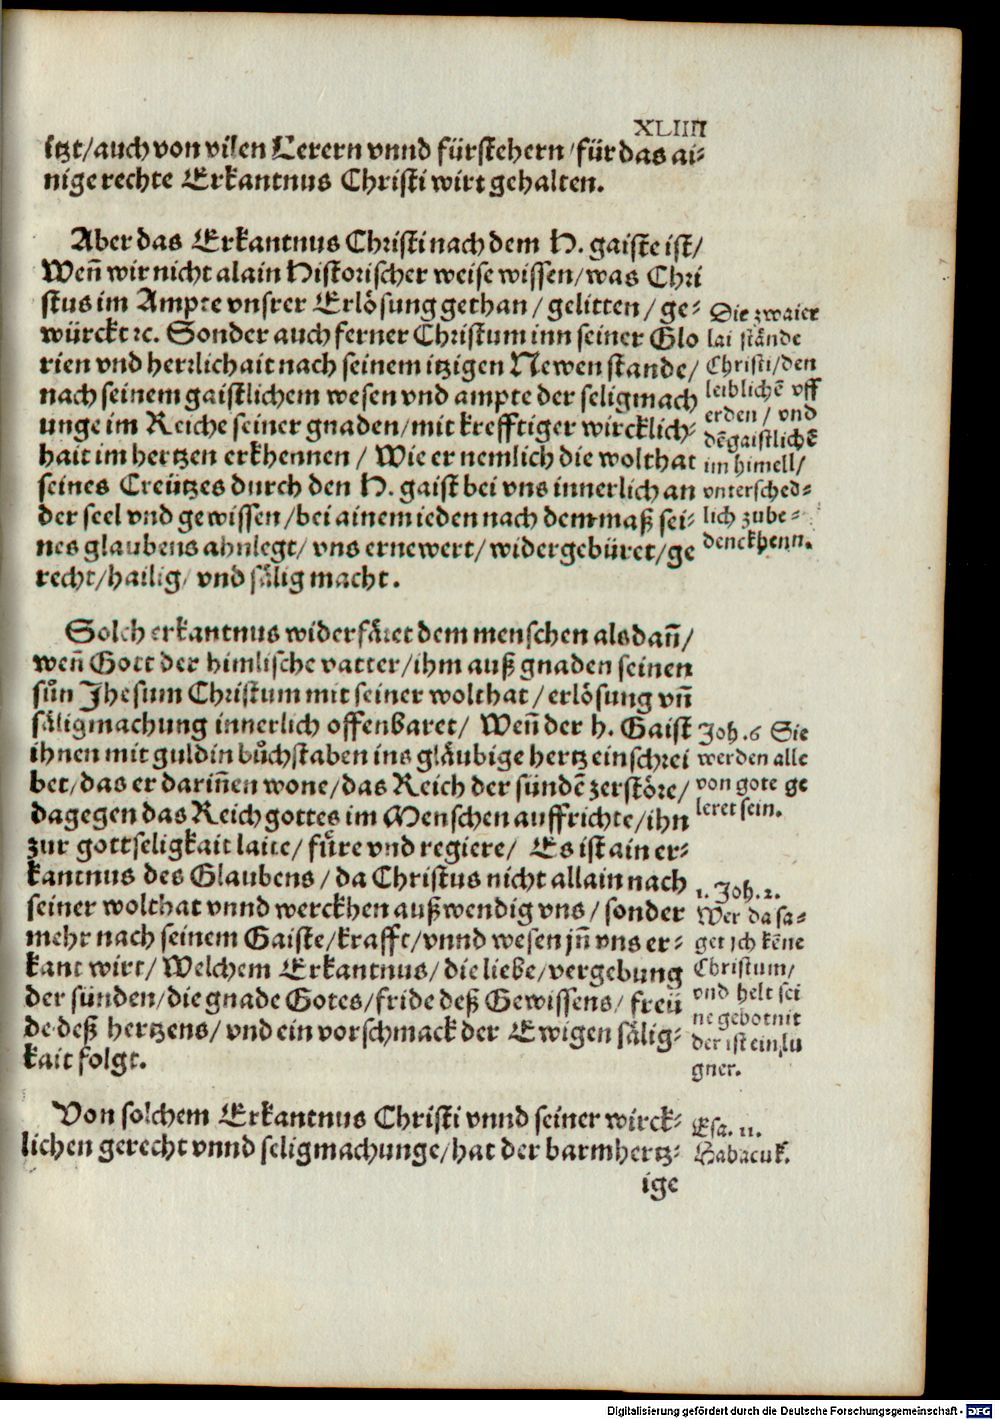 XLIIII
itzt/auch von vilen Lerern vnnd fürstehern/für das ai-
nige rechte Erkantnus Christi wirt gehalten.
Aber das Erkantnus Christi nach dem H. gaiste ist/
Weñ wir nicht alain Historischer weise wissen/was Chri
stus im Ampte vnsrer Erlösung gethan/gelitten/ge-
würckt ꝛc. Sonder auch ferner Christum inn seiner Glo
rien vnd herrlichait nach seinem itzigen Newen stande/
nach seinem gaistlichem wesen vnd ampte der seligmach
unge im Reiche seiner gnaden/mit krefftiger wircklich-
hait im hertzen erkhennen/Wie er nemlich die wolthat
seines Creützes durch den H. gaist bei vns innerlich an
der seel vnd gewissen/bei ainem ieden nach dem maß sei-
nes glaubens ahnlegt/vns ernewert/widergebüret/ge
recht/hailig/vnd sälig macht.
Die zwaier
lai stände
Christi/den
leiblichē vff
erden/vnd
dē gaistlichē
im himell/
vntersched-
lich zube-
denckhenn.
Solch erkantnus widerfäret dem menschen alsdañ/
weñ Gott der himlische vatter/ihm auß gnaden seinen
suͤn Jhesum Christum mit seiner wolthat/erlösung vñ
säligmachung innerlich offenbaret/Weñ der h. Gaist
ihnen mit guldin buͦchstaben ins gläubige hertz einschrei
bet/das er dariñen wone/das Reich der sündē zerstöre/
dagegen das Reich gottes im Menschen auffrichte/ihn
zur gottseligkait laite/fuͤre vnd regiere/Es ist ain er-
kantnus des Glaubens/da Christus nicht allain nach
seiner wolthat vnnd werckhen außwendig vns/sonder
mehr nach seinem Gaiste/krafft/vnnd wesen jñ vns er-
kant wirt/Welchem Erkantnus/die liebe/vergebung
der sünden/die gnade Gotes/fride deß Gewissens/freü
de deß hertzens/vnd ein vorschmack der Ewigen sälig-
kait folgt.
Joh. 6 Sie
werden alle
von gote ge
leret sein.
1. Joh. 2.
Wer da sa-
get jch kēne
Christum/
vnd helt sei
ne gebot nit
der ist ein lu
gner.
Von solchem Erkantnus Christi vnnd seiner wirck-
lichen gerecht vnnd seligmachunge/hat der barmhertz-
ige
Esa. 11.
Habacuk.
Digitalisierung gefördert durch die Deutsche Forschungsgemeinschaft - DFG